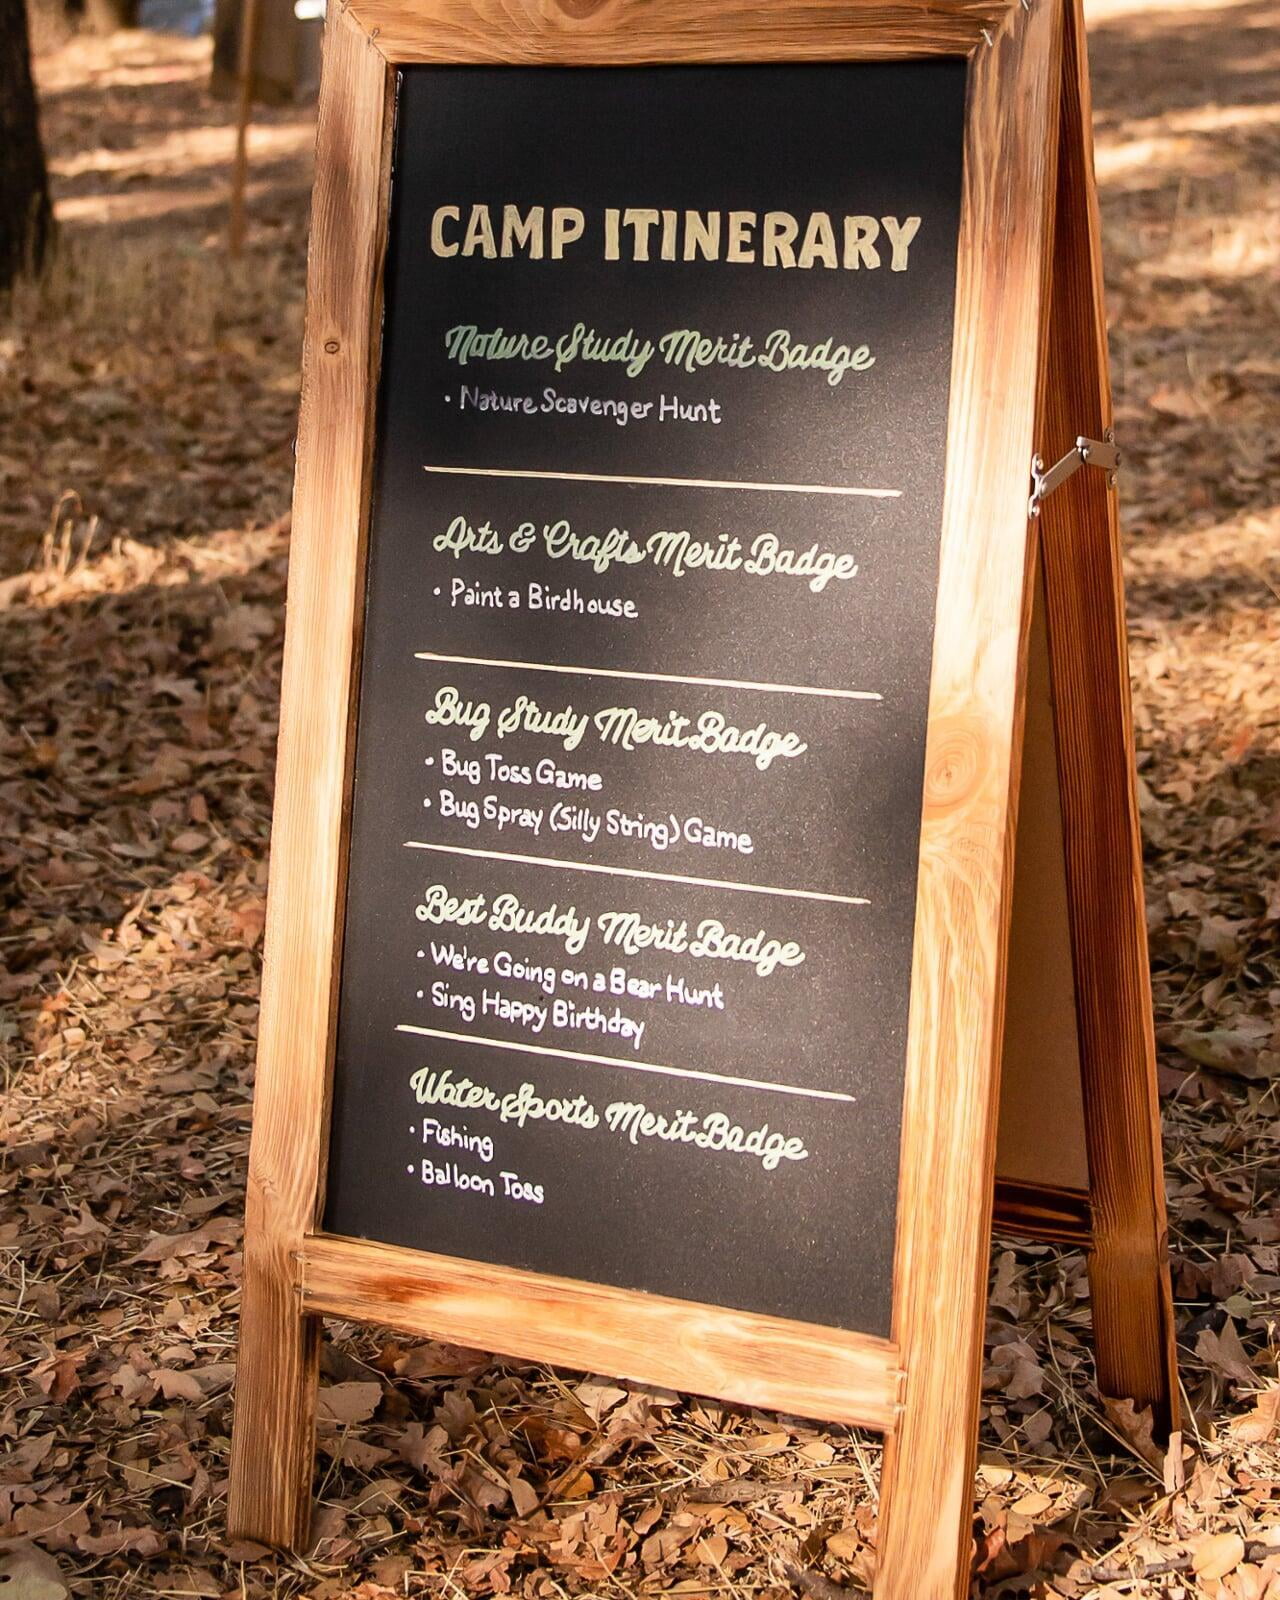 CAMP ITINERARY
Nature Study Merit Badge
• Nature Scavenger Hunt
Arts & Crafts Merit Badge
• Paint a Birdhouse
Bug Study Merit Badge
• Bug Toss Game
• Bug Spray (Silly String) Game
Best Buddy Merit Badge
• We're Going on a Bear Hunt
• Sing Happy Birthday
Water Sports Merit Badge
• Fishing
• Balloon Toss